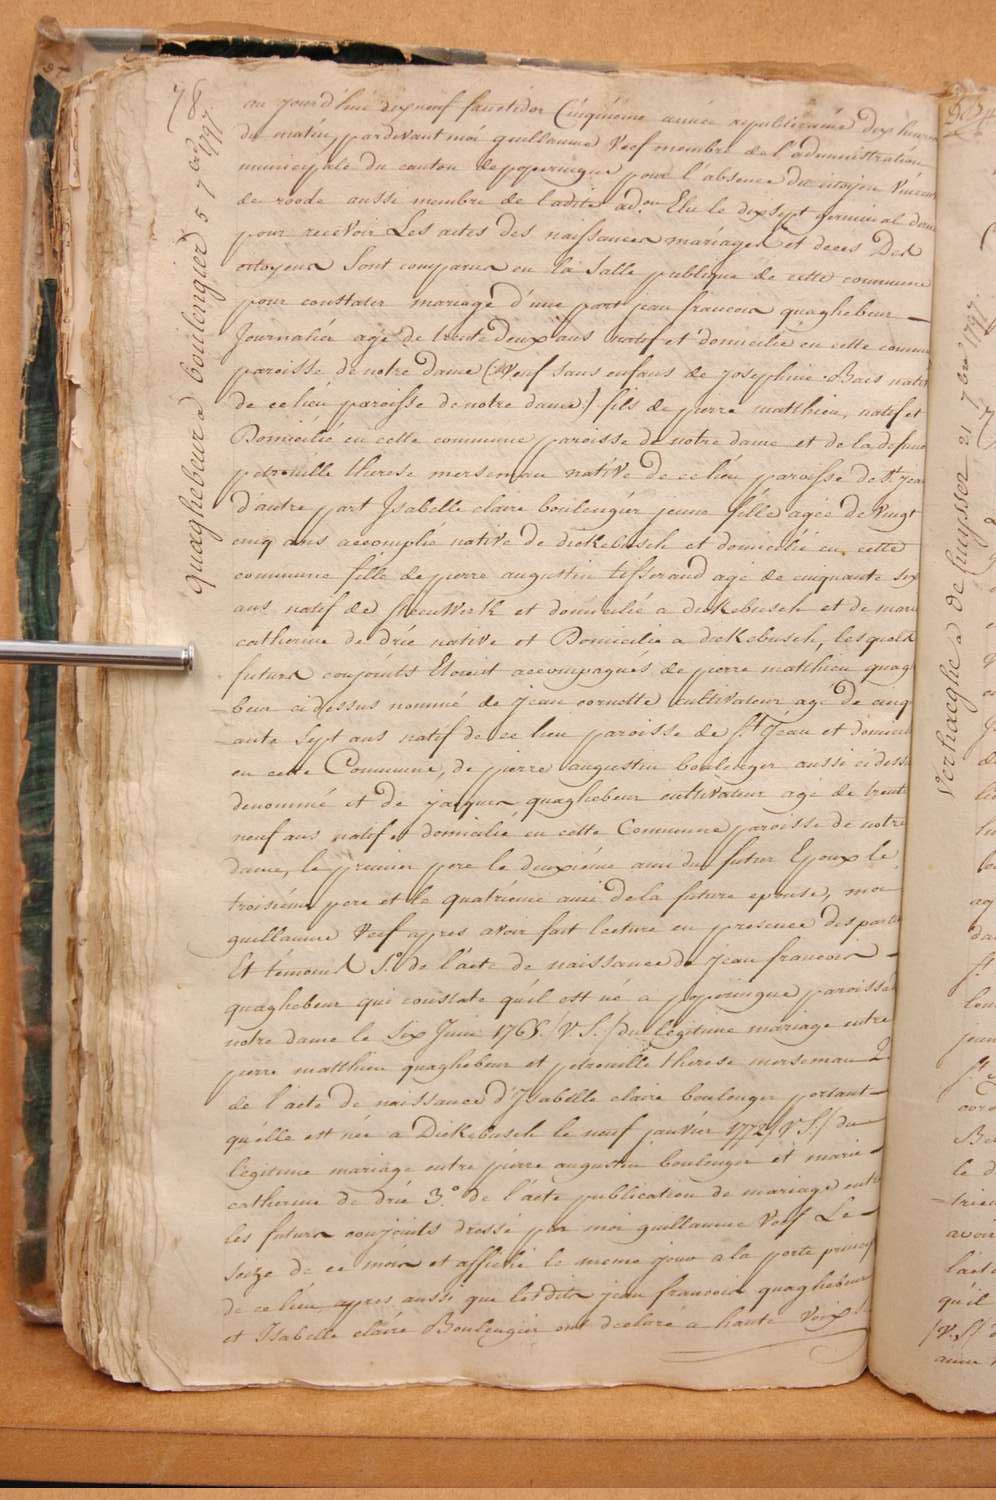 78
quaghebeur a boulenguier 5 7bre 1797
au jourd'hui dix neuf fructidor Cinquieme année republicaine dix heures
du matin, pardevant moi guillaume Veef membre de l'administration
municipale du canton de poperingue pour l'absence du citoyen Vincent
de roode aussi membre de ladite adon Elu le dix sept germinal dans
pour recevoir Les actes des naissances mariages et deces Des
citoyens Sont comparus en la Salle publique de cette commune
pour constater mariage d'une part jean francois quaghebeur
Journalier agé de trente Deux ans natif et domicilié en cette commu
paroisse de notre Dame (Veuf sans enfans de Josephine Baes nativ
de ce lieu paroisse de notre dame) fils de pierre matthieu, natif et
Domicilié en cette commune paroisse de notre dame et de la defun
petronille therese merseman native de ce lieu paroisse de St. jean
d'autre part Isabelle claire boulengier jeune fille agée de Vingt
cinq ans accomplie native de dickebusch et domicilié en cette
commune fille de pierre augustin tisserand agé de cinquante six
ans natif de steenwerk et domicilié a dickebusch et de marie
catherine de drie native et Domicilié a dickebusch, lesquels
futurs conjoints Etoient accompagnés de pierre matthieu quag
beur ci dessus nommé de jean cornette cultivateur agé de cinq
ante sept ans natif de ce lieu paroisse de St Jean et domici
en cette Commune, de pierre augustin boulenger aussi ci dess
denommé et de jacques quaghebeur cultivateur agé de trente
neuf ans natif et domicilié en cette Commune paroisse de notre
dame, le premier pere le deuxiéme ami du futur Epoux le
troisiéme pere et le quatriéme ami de la future epouse, moi
guillaume Veef apres avoir fait lecture en presence des parti
Et témoins 1.o de l'acte de naissance de jean francois
quaghebeur qui constate qu'il est né a poperingue paroisse
notre dame le Six Juin 1765 /V.S./ du légitime mariage entre
pierre matthieu quaghebeur et petronille therese merseman 2
de l'acte de naissance d'Isabelle claire boulenger portant
qu'elle est née a Dickebusch le neuf janvier 1772 /V.S./ du
légitime mariage entre pierre augustin boulengier et marie
catherine de drie 3.o de l'acte publication de mariage entre
les futurs conjoints dressé par moi guillaume Veef Le
seize de ce mois et affiché le meme jour a la porte princip
de ce lieu apres aussi que lesdits jean francois quaghebeur
et Isabelle claire Boulengier ont declaré a haute Voix
Verhaeghe a de Cuysser 21 7bre 1797